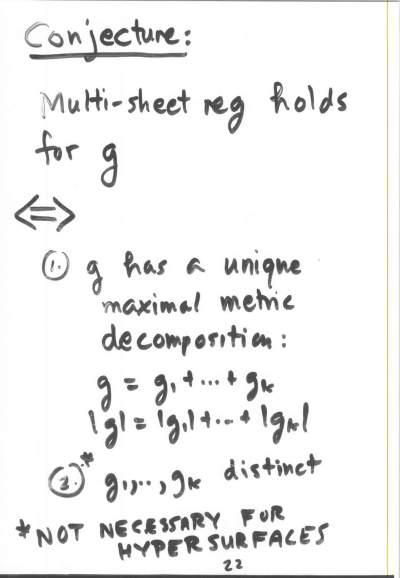 Conjecture:
Multi-sheet reg holds
for g
⟺
①. g has a unique
maximal metric
decomposition:
g = g₁ + ... + gₖ
|g| = |g₁| + ... + |gₖ|
②.* g₁, .., gₖ distinct
* NOT NECESSARY FOR
HYPERSURFACES
22